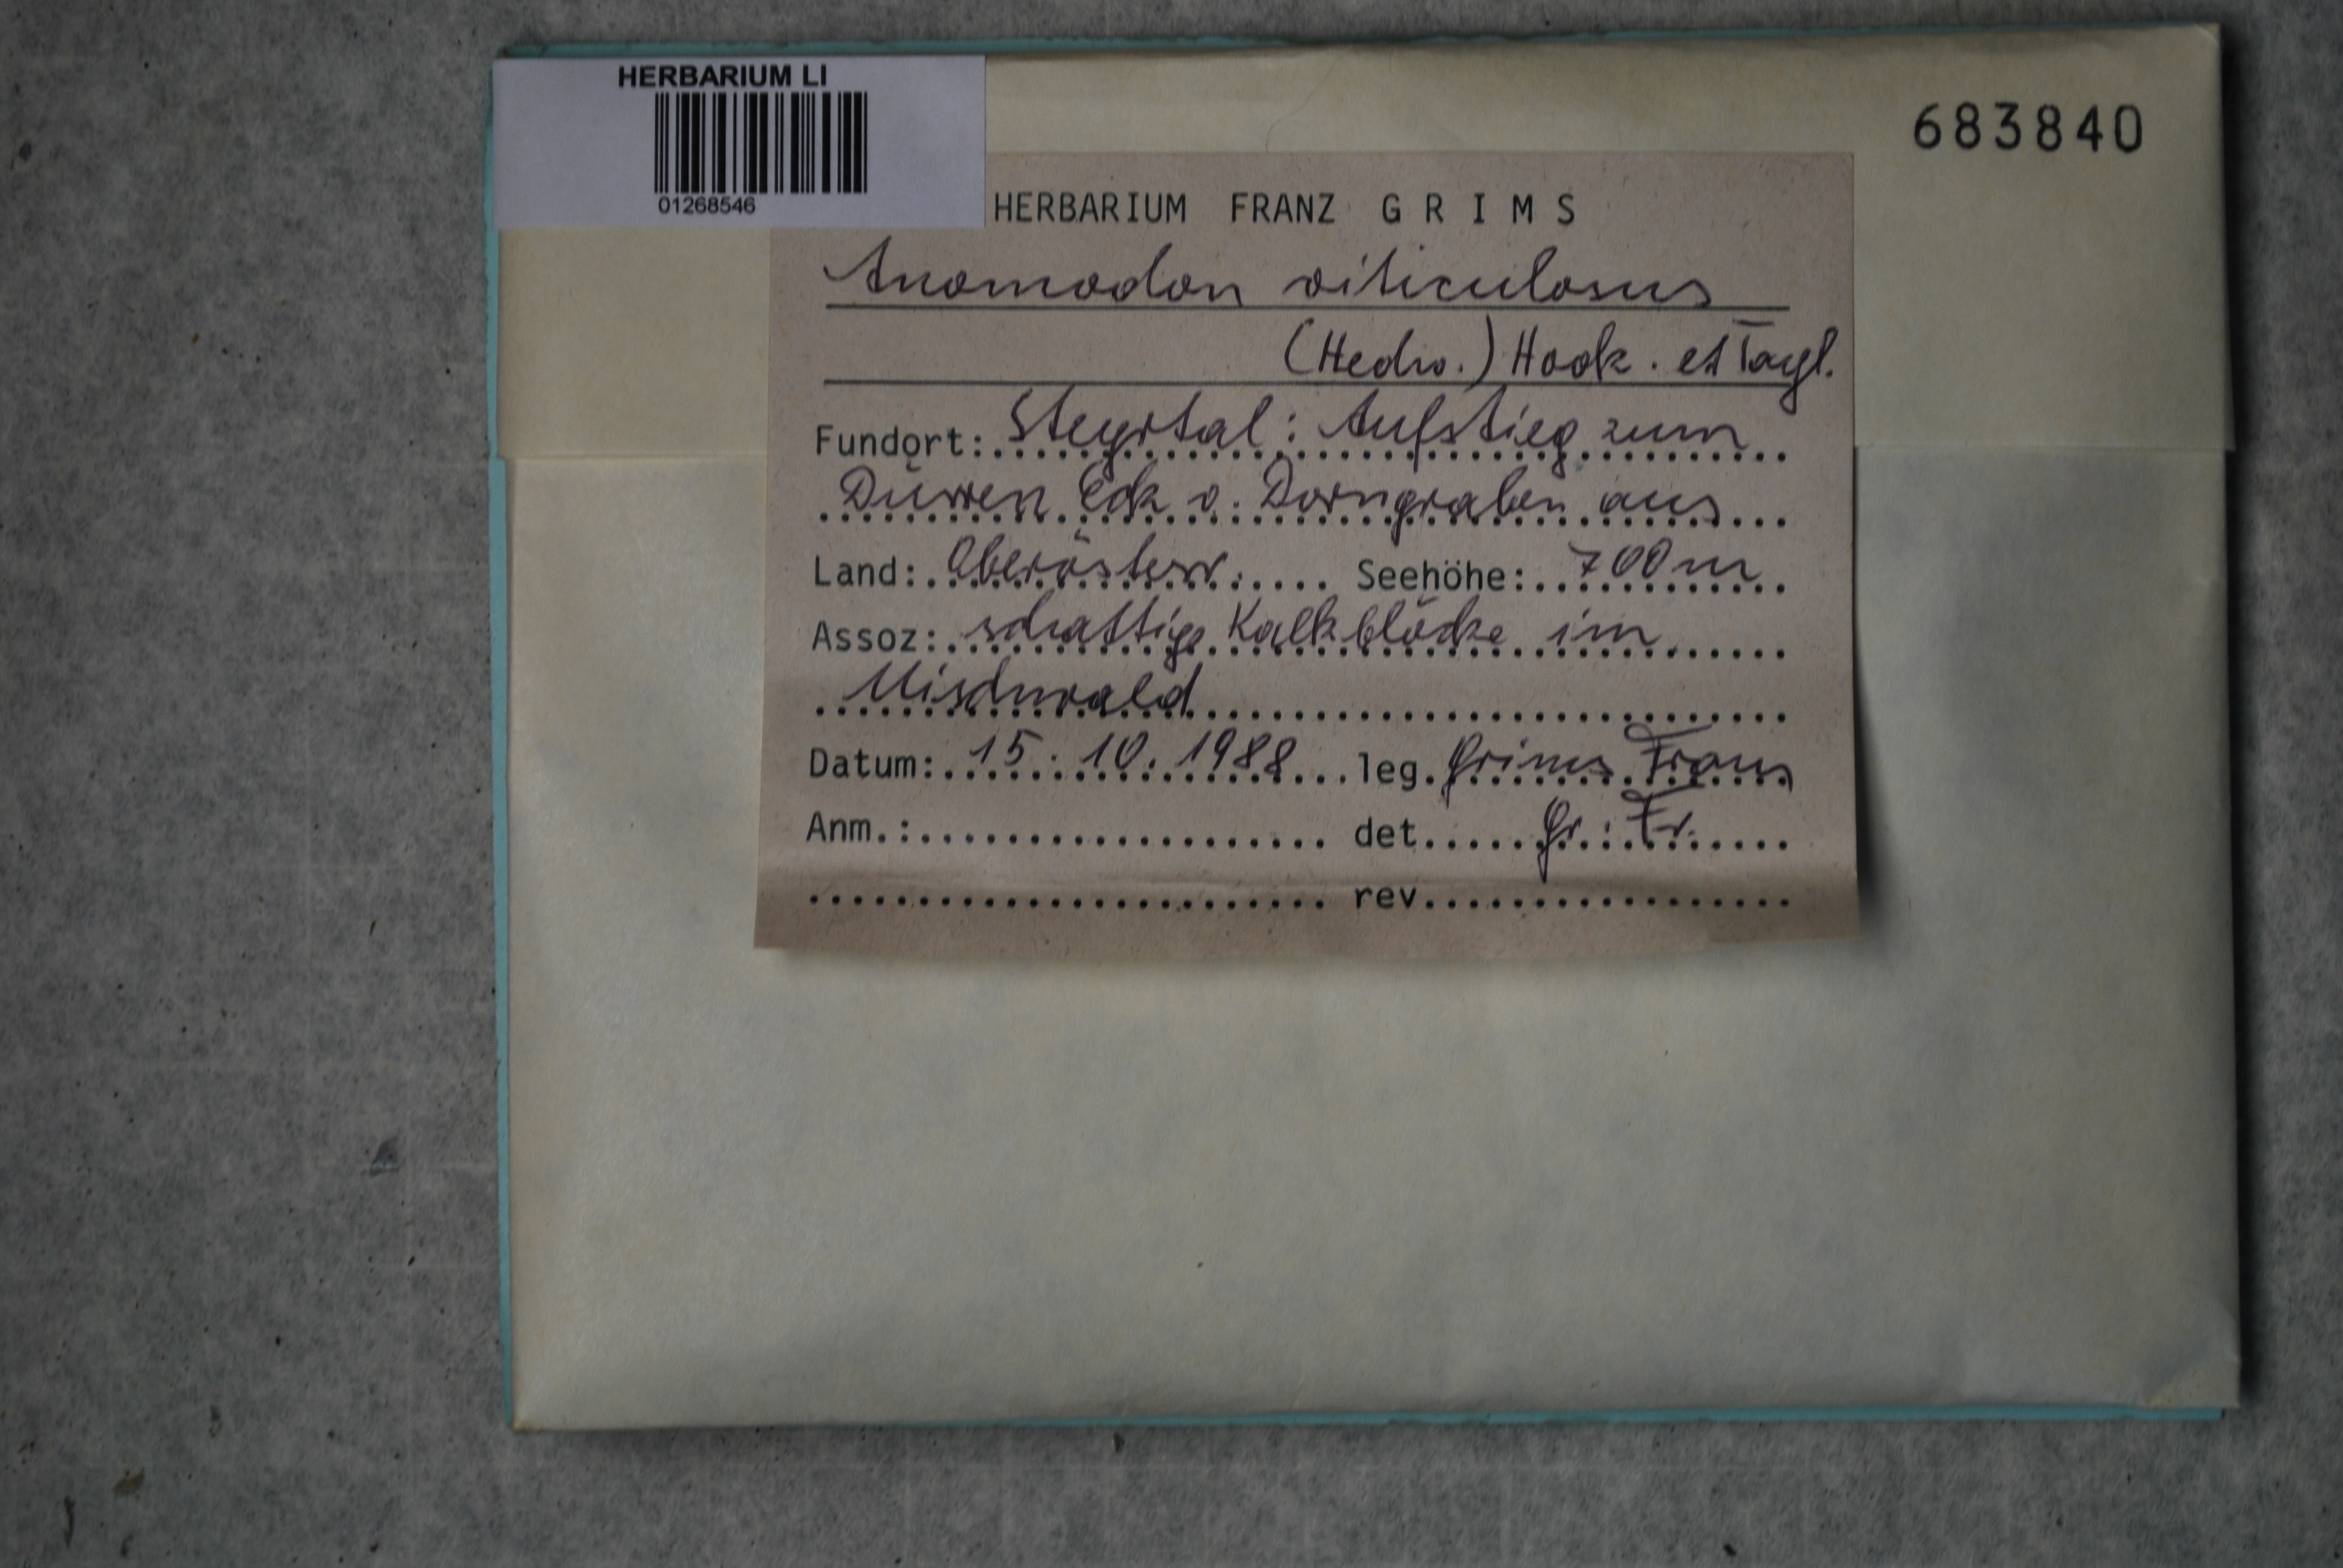 HERBARIUM LI
01268546
683840
HERBARIUM FRANZ GRIMS
Anomodon viticulosus
(Hedw.) Hook. et Tayl.
Fundort: Steyrtal: Aufstieg zum
Dürren Eck v. Dorngraben aus
Land: Oberösterr. Seehöhe: 700 m
Assoz: schattige Kalkblöcke im
Mischwald
Datum: 15. 10. 1988 leg. Grims Franz
Anm.: det. Gr. Fr.
rev.